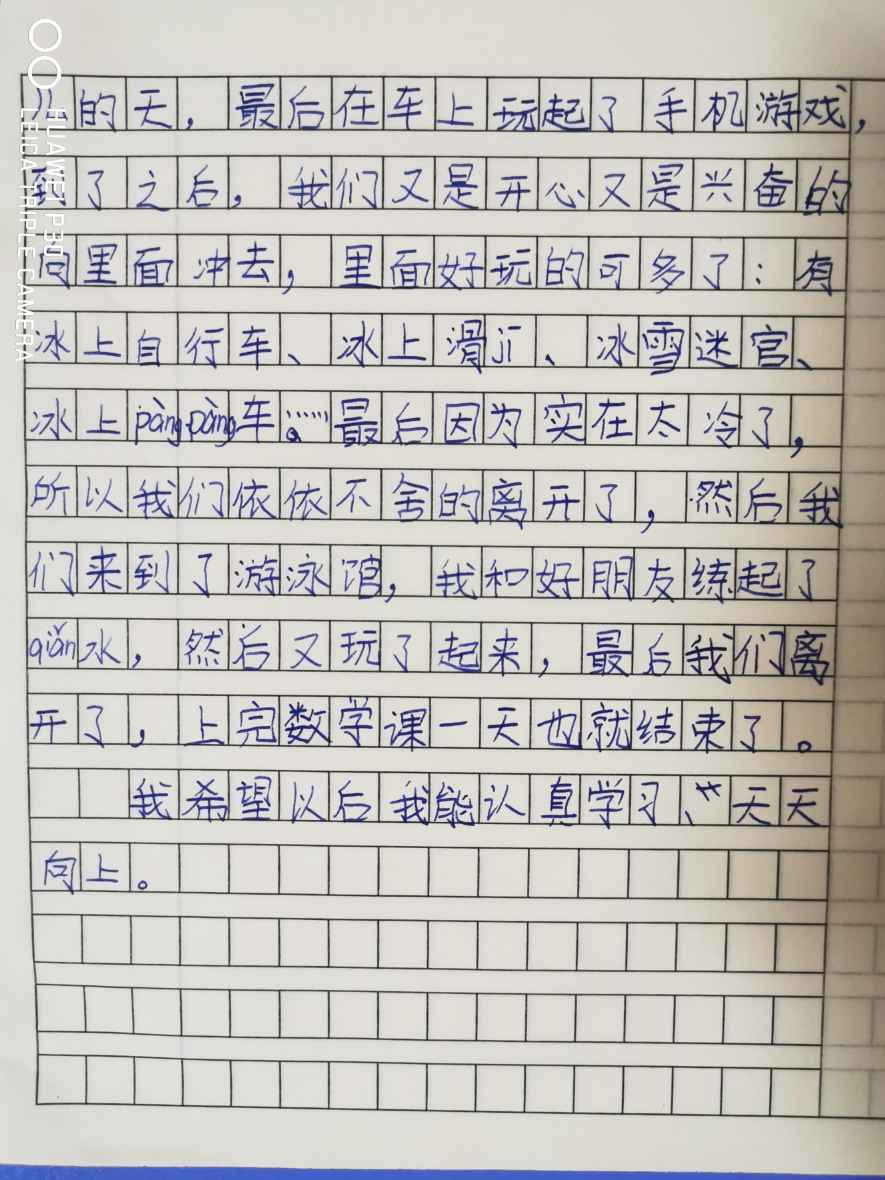 的天，最后在车上玩起了手机游戏，
到了之后，我们又是开心又是兴奋的
向里面冲去，里面好玩的可多了：有
冰上自行车、冰上滑jī、冰雪迷宫、
冰上pàngpàng车……。最后因为实在太冷了，
所以我们依依不舍的离开了，然后我
们来到了游泳馆，我和好朋友练起了
qiǎn水，然后又玩了起来，最后我们离
开了，上完数学课一天也就结束了。
我希望以后我能认真学习、天天
向上。
HUAWEI P30
LEICA TRIPLE CAMERA